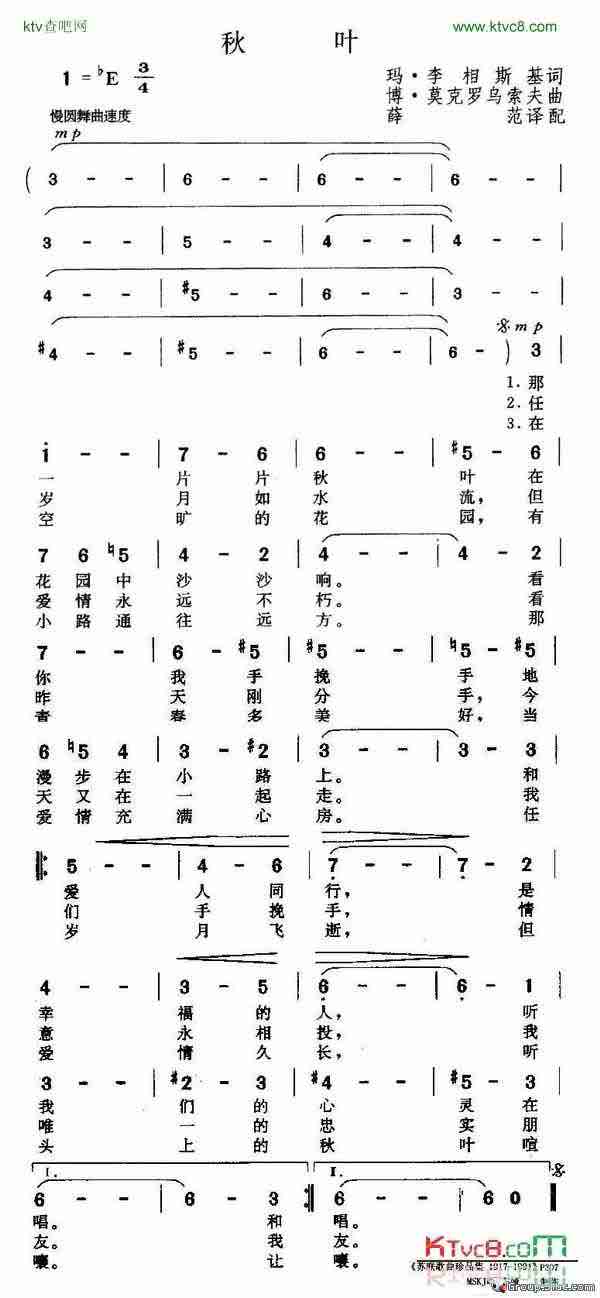 ktv查吧网
www.ktvc8.com
秋 叶
1 = ♭E 3/4
玛·李相斯基词
博·莫克罗乌索夫曲
薛 范译配
慢圆舞曲速度
mp
( 3 - - | 6 - - | 6 - - | 6 - - |
3 - - | 5 - - | 4 - - | 4 - - |
4 - - | #5 - - | 6 - - | 3 - - |
mp
#4 - - | #5 - - | 6 - - | 6 - ) 3 |
1.那
2.任
3.在
1 - - | 7 - 6 | 6 - - | #5 - 6 |
一 片 片 秋 叶 在
岁 月 如 水 流, 但
空 旷 的 花 园, 有
7 6 ♮5 | 4 - 2 | 4 - - | 4 - 2 |
花 园 中 沙 沙 响。 看
爱 情 永 远 不 朽。 看
小 路 通 往 远 方。 那
7 - - | 6 - #5 | #5 - - | ♮5 - #5 |
你 我 手 挽 手 地
昨 天 刚 分 手, 今
青 春 多 美 好, 当
6 ♮5 4 | 3 - #2 | 3 - - | 3 - 3 |
漫 步 在 小 路 上。 和
天 又 在 一 起 走。 我
爱 情 充 满 心 房。 任
5 - - | 4 - 6 | 7 - - | 7 - 2 |
爱 人 同 行, 是
们 手 挽 手, 情
岁 月 飞 逝, 但
4 - - | 3 - 5 | 6 - - | 6 - 1 |
幸 福 的 人, 听
意 永 相 投, 我
爱 情 久 长, 听
3 - - | #2 - 3 | #4 - - | #5 - 3 |
我 们 的 心 灵 在
唯 一 的 忠 实 朋
头 上 的 秋 叶 喧
I. II.
6 - - | 6 - 3 :| 6 - - | 6 0 0 ‖
唱。 和 唱。
友。 我 友。
嚷。 让 嚷。
KTvc8.com
《苏联歌曲珍品集 1917-1991》P307